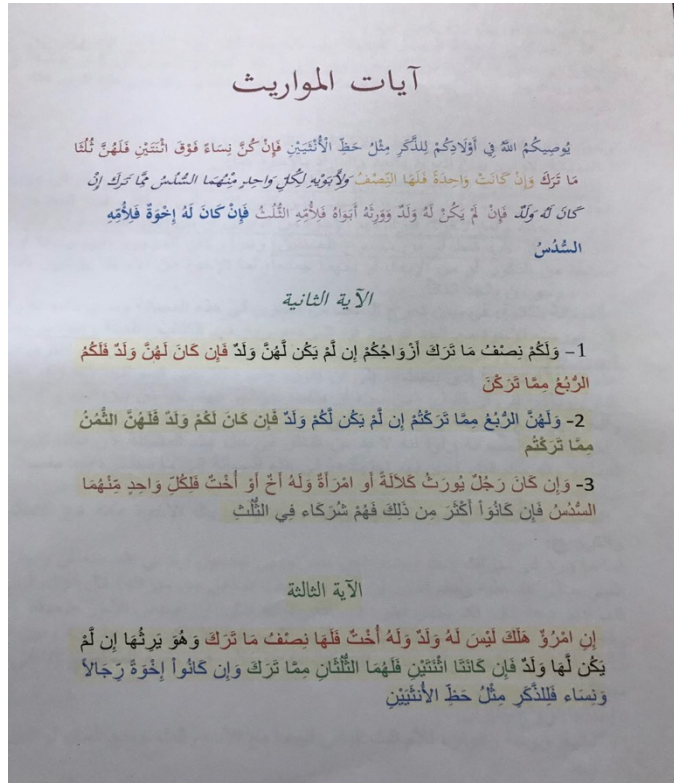 آيات المواريث
يُوصِيكُمُ اللَّهُ فِي أَوْلَادِكُمْ لِلذَّكَرِ مِثْلُ حَظِّ الْأُنْثَيَيْنِ فَإِنْ كُنَّ نِسَاءً فَوْقَ اثْنَتَيْنِ فَلَهُنَّ ثُلُثَا
مَا تَرَكَ وَإِنْ كَانَتْ وَاحِدَةً فَلَهَا النِّصْفُ وَلِأَبَوَيْهِ لِكُلِّ وَاحِدٍ مِنْهُمَا السُّدُسُ مِمَّا تَرَكَ إِنْ
كَانَ لَهُ وَلَدٌ فَإِنْ لَمْ يَكُنْ لَهُ وَلَدٌ وَوَرِثَهُ أَبَوَاهُ فَلِأُمِّهِ الثُّلُثُ فَإِنْ كَانَ لَهُ إِخْوَةٌ فَلِأُمِّهِ
السُّدُسُ
الآية الثانية
1- وَلَكُمْ نِصْفُ مَا تَرَكَ أَزْوَاجُكُمْ إِن لَّمْ يَكُن لَّهُنَّ وَلَدٌ فَإِن كَانَ لَهُنَّ وَلَدٌ فَلَكُمُ
الرُّبُعُ مِمَّا تَرَكْنَ
2- وَلَهُنَّ الرُّبُعُ مِمَّا تَرَكْتُمْ إِن لَّمْ يَكُن لَّكُمْ وَلَدٌ فَإِن كَانَ لَكُمْ وَلَدٌ فَلَهُنَّ الثُّمُنُ
مِمَّا تَرَكْتُم
3- وَإِن كَانَ رَجُلٌ يُورَثُ كَلَالَةً أَو امْرَأَةٌ وَلَهُ أَخٌ أَوْ أُخْتٌ فَلِكُلِّ وَاحِدٍ مِّنْهُمَا
السُّدُسُ فَإِن كَانُوَاْ أَكْثَرَ مِن ذَلِكَ فَهُمْ شُرَكَاء فِي الثُّلُثِ
الآية الثالثة
إِنِ امْرُؤٌ هَلَكَ لَيْسَ لَهُ وَلَدٌ وَلَهُ أُخْتٌ فَلَهَا نِصْفُ مَا تَرَكَ وَهُوَ يَرِثُهَا إِن لَّمْ
يَكُن لَّهَا وَلَدٌ فَإِن كَانَتَا اثْنَتَيْنِ فَلَهُمَا الثُّلُثَانِ مِمَّا تَرَكَ وَإِن كَانُواْ إِخْوَةً رِّجَالاً
وَنِسَاء فَلِلذَّكَرِ مِثْلُ حَظِّ الأُنثَيَيْنِ